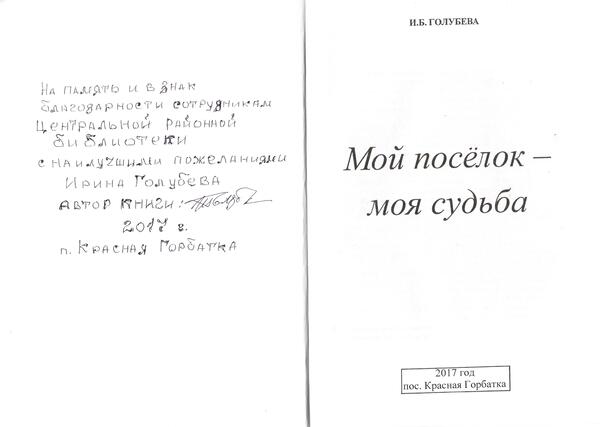 На память и в знак
благодарности сотрудникам
Центральной районной
библиотеки
с наилучшими пожеланиями
Ирина Голубева
автор книги:
2017 г.
п. Красная Горбатка
И.Б. ГОЛУБЕВА
Мой посёлок –
моя судьба
2017 год
пос. Красная Горбатка